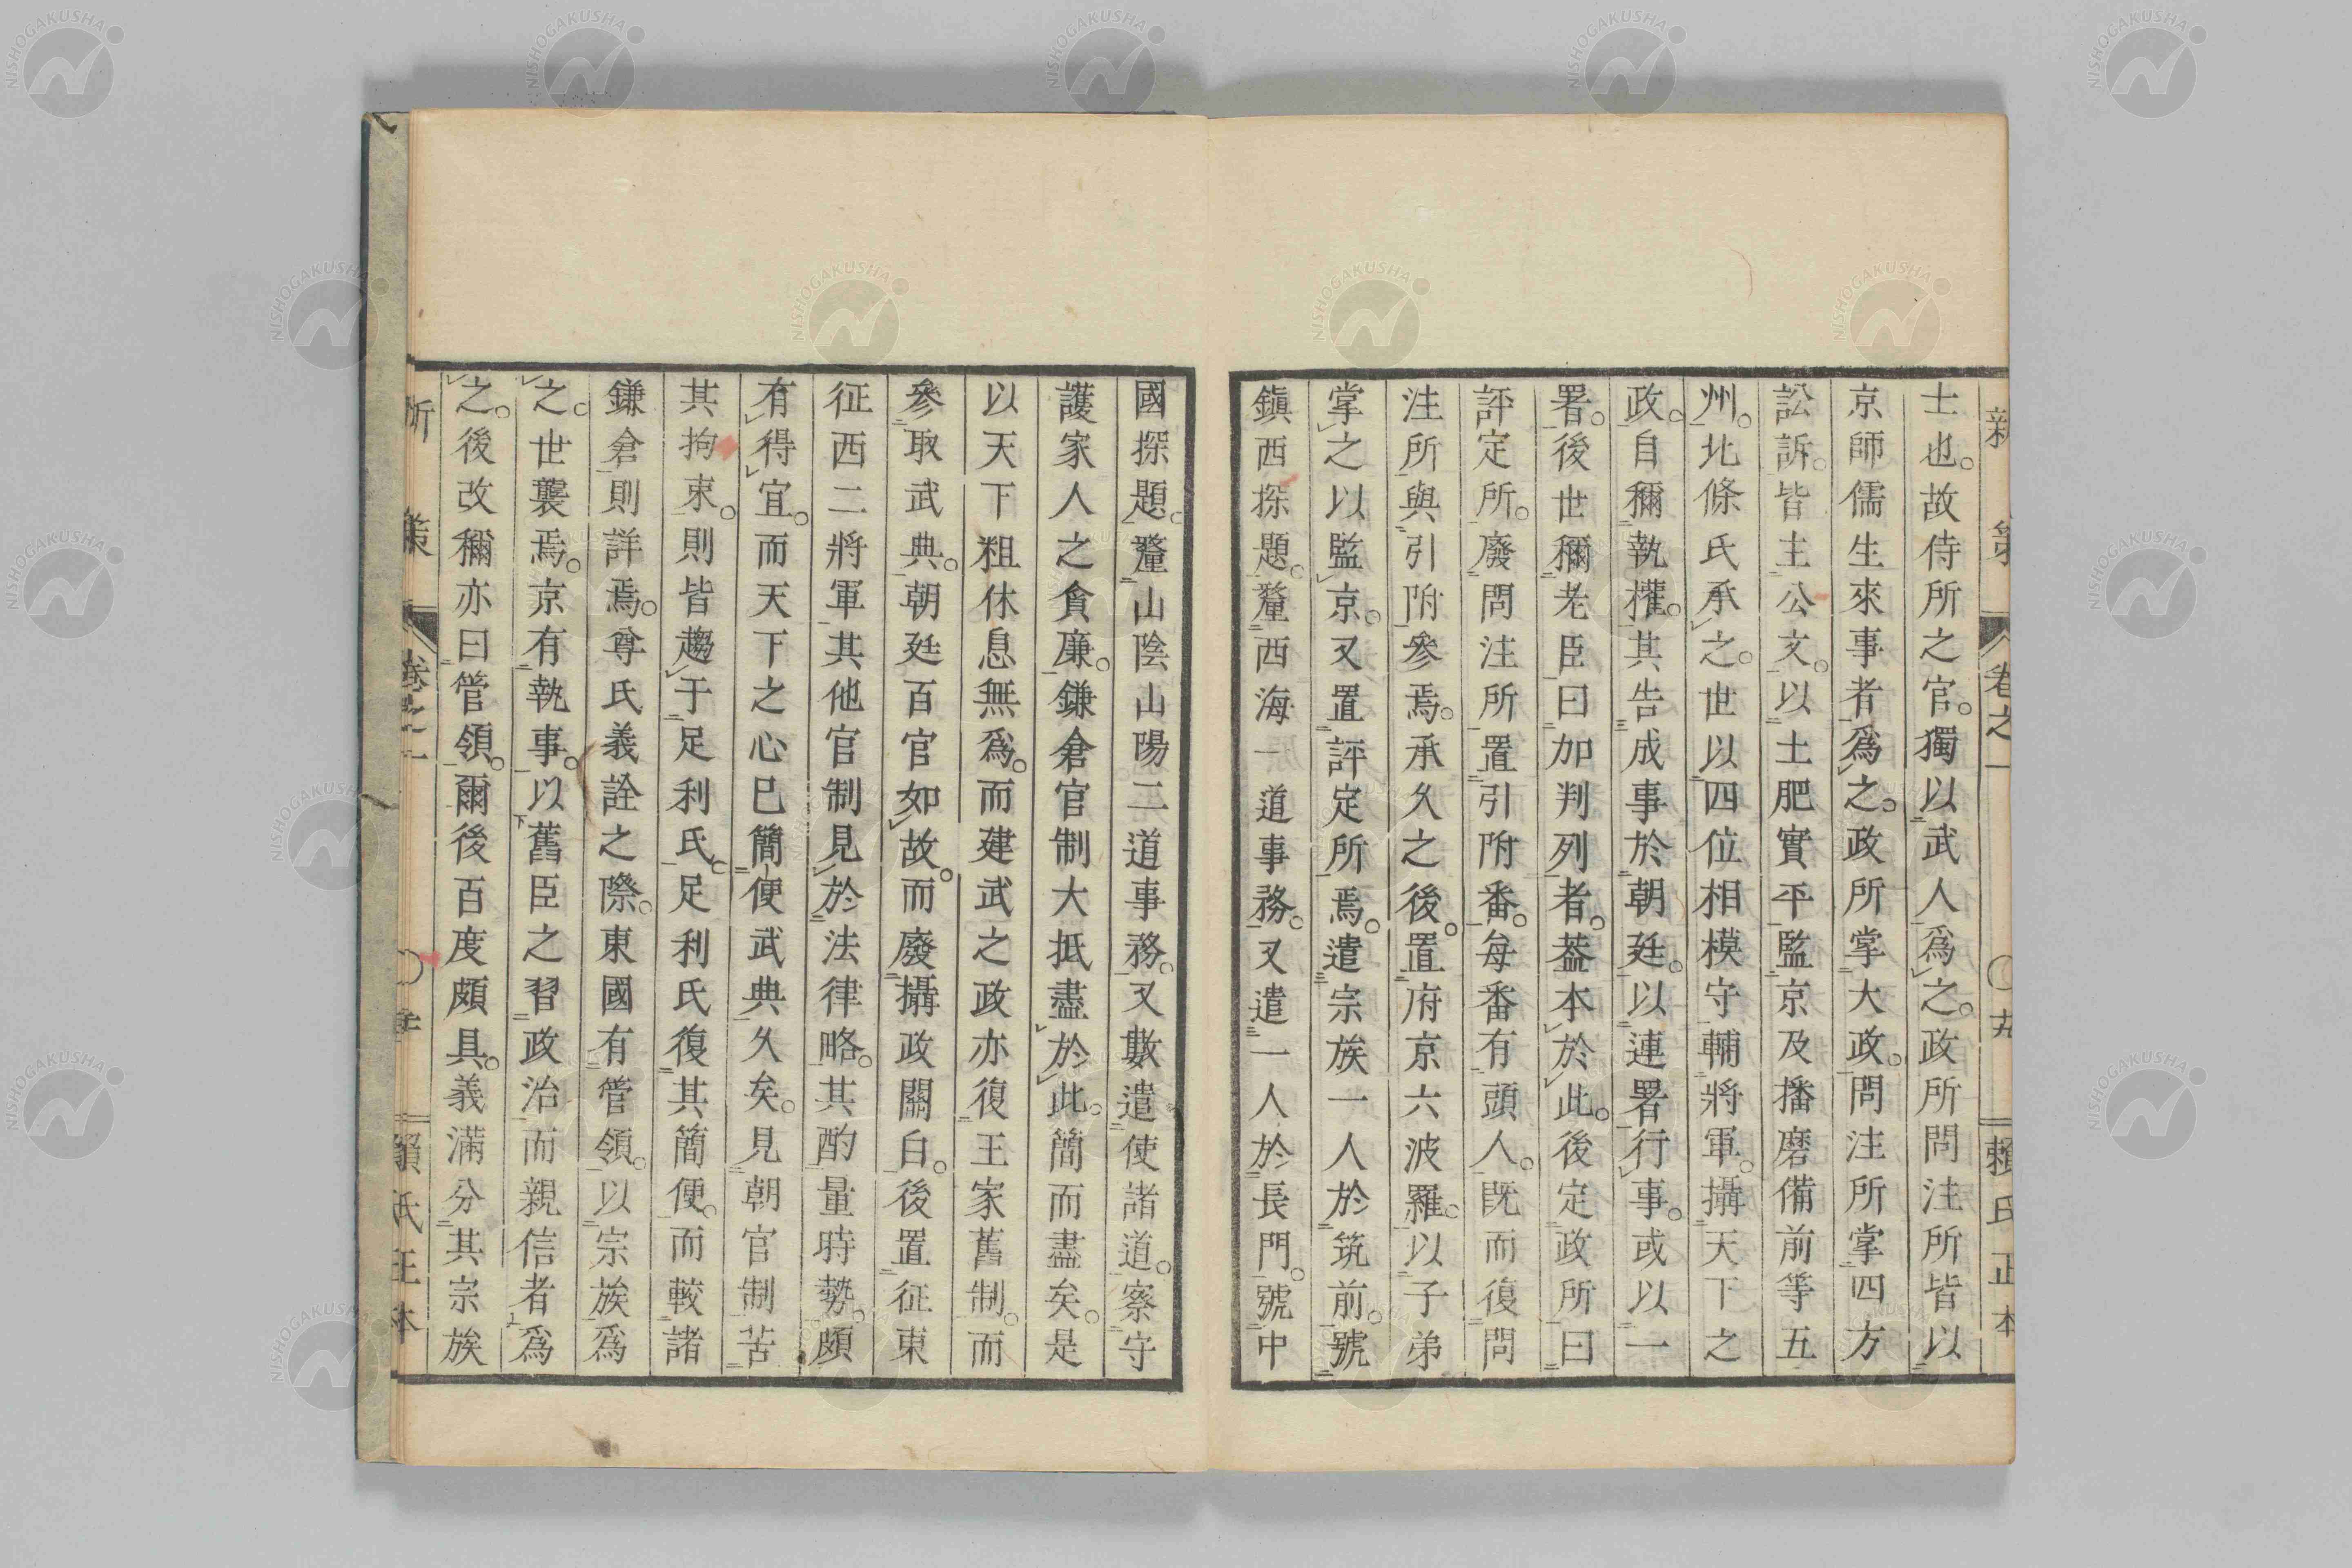 新策 卷之一 ○ 十五 賴氏正本
士也。故侍所之官。獨以武人爲之。政所問注所皆以
京師儒生來事者爲之。政所掌大政。問注所掌四方
訟訴。皆主公文。以土肥實平監京及播磨備前等五
州。北條氏承之。世以四位相模守輔將軍。攝天下之
政。自稱執權。其告成事於朝廷。以連署行事。或以一
署。後世稱老臣曰加判列者。葢本於此。後定政所曰
評定所。廢問注所。置引附番。每番有頭人。既而復問
注所。與引附參焉。承久之後。置府京六波羅。以子弟
掌之以監京。又置評定所焉。遣宗族一人於筑前。號
鎮西探題。釐西海一道事務。又遣一人於長門。號中
國探題。釐山陰山陽二道事務。又數遣使諸道。察守
護家人之貪廉。鎌倉官制大抵盡於此。簡而盡矣。是
以天下粗休息無爲。而建武之政亦復王家舊制。而
參取武典。朝廷百官如故。而廢攝政關白。後置征東
征西二將軍其他官制見於法律略。其酌量時勢。頗
有得宜。而天下之心已簡便武典久矣。見朝官制苦
其拘束。則皆趨于足利氏。足利氏復其簡便。而較諸
鎌倉則詳焉。尊氏義詮之際。東國有管領。以宗族爲
之。世襲焉。京有執事。以舊臣之習政治而親信者爲
之。後改稱亦曰管領。爾後百度頗具。義滿分其宗族
卷之一 ○ 賴氏正本